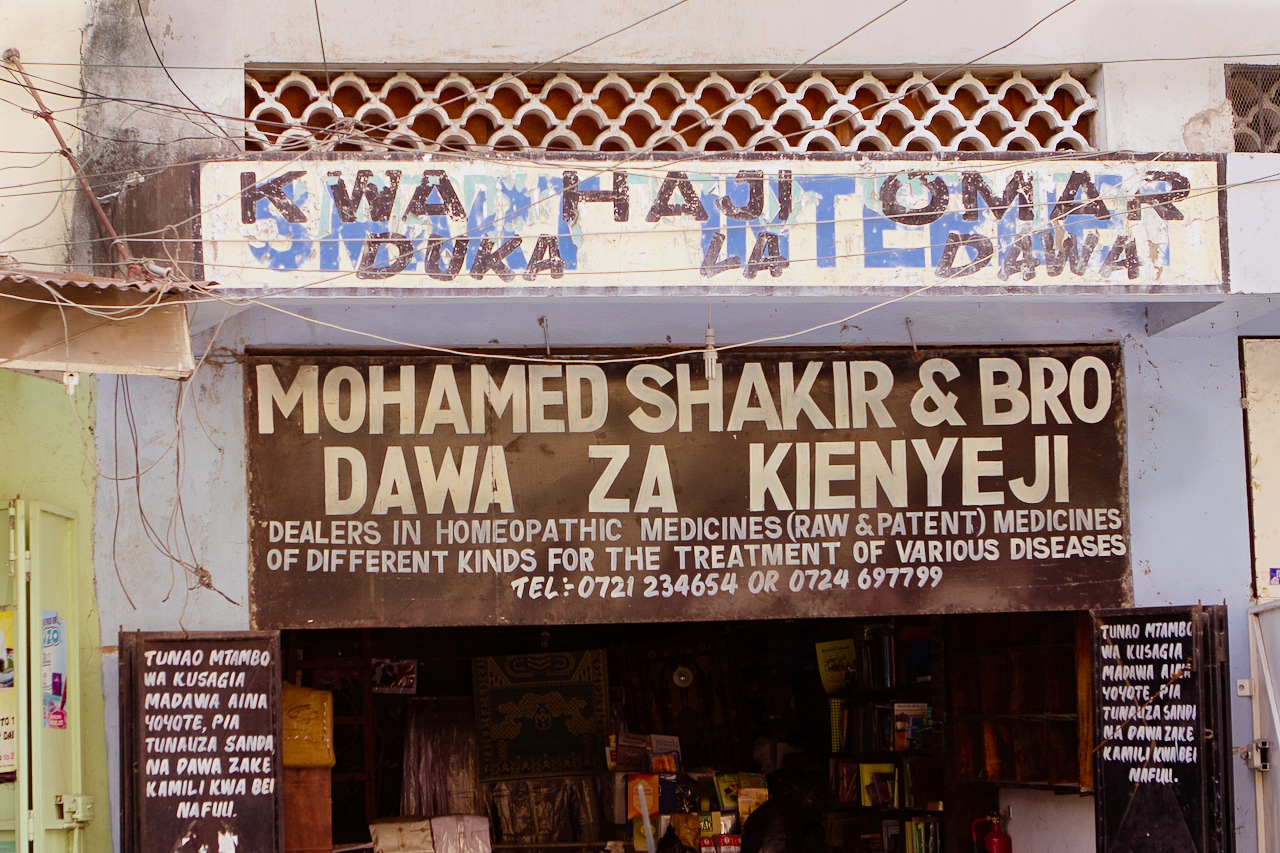 KWA HAJI OMAR
DUKA LA DAWA
MOHAMED SHAKIR & BRO
DAWA ZA KIENYEJI
DEALERS IN HOMEOPATHIC MEDICINES (RAW & PATENT) MEDICINES
OF DIFFERENT KINDS FOR THE TREATMENT OF VARIOUS DISEASES
TEL:- 0721 234654 OR 0724 697799
TUNAO MTAMBO
WA KUSAGIA
MADAWA AINA
YOYOTE, PIA
TUNAUZA SANDA
NA DAWA ZAKE
KAMILI KWA BEI
NAFUU.
TUNAO MTAMBO
WA KUSAGIA
MADAWA AINA
YOYOTE, PIA
TUNAUZA SANDA
NA DAWA ZAKE
KAMILI KWA BEI
NAFUU.